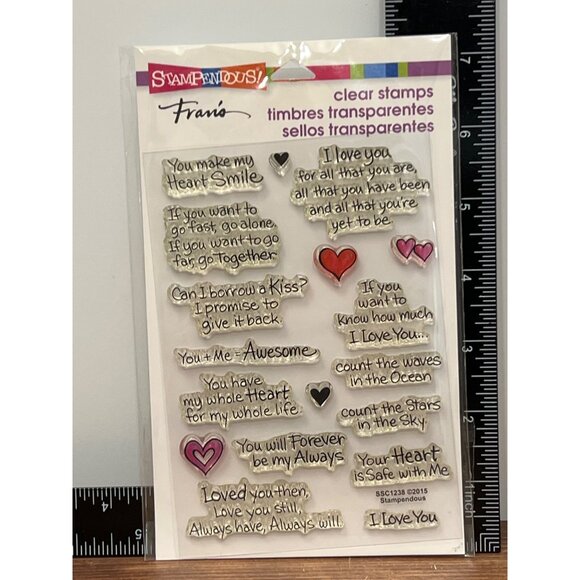 STAMPENDOUS!
Fran's
clear stamps
timbres transparentes
sellos transparentes
You make my
Heart Smile
I love you
for all that you are,
all that you have been
and all that you're
yet to be.
If you want to
go fast, go alone.
If you want to go
far, go Together.
Can I borrow a Kiss?
I promise to
give it back.
If you
want to
know how much
I Love You...
You + Me = Awesome
count the waves
in the Ocean
You have
my whole Heart
for my whole life.
count the Stars
in the Sky
You will Forever
be my Always
Your Heart
is Safe with Me
Loved you then,
Love you still,
Always have, Always will.
SSC1238 ©2015
Stampendous
I Love You
7
6
5
4
3
2
1inch
4
5